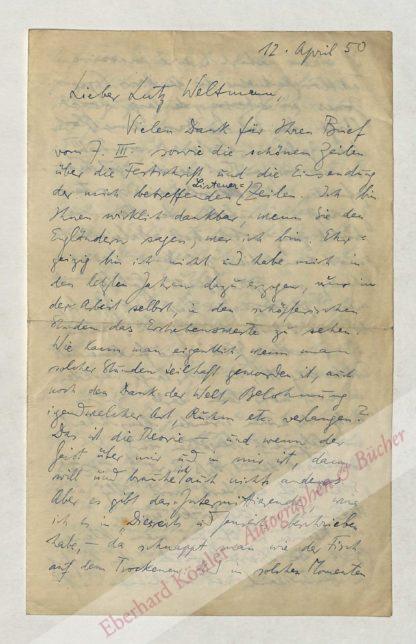 12. April 50
Lieber Lutz Weltmann,
Vielen Dank für Ihren Brief
vom 7. III. sowie die schönen Zeilen
über die Festschrift und die Einsendung
der mich betreffenden Listener=Zeilen. Ich bin
Ihnen wirklich dankbar, wenn Sie den
Engländern sagen, wer ich bin. Ehr=
geizig bin ich nicht und habe mich in
den letzten Jahren dazu erzogen, nur in
der Arbeit selbst, in den schöpferischen
Stunden das Erstrebenswerte zu sehen.
Wie kann man eigentlich, wenn man
solcher Stunden teilhaft geworden ist, auch
noch den Dank der Welt, Belohnung
irgendwelcher Art, Ruhm etc. verlangen?
Das ist die Theorie – und wenn der
Geist über mir und in mir ist, dann
will und brauche ich auch nichts anderes.
Aber es gibt das Intermittierende, wie
ich es in „Diesseits und Jenseits" beschrieben
habe, – da schnappt man wie der Fisch
auf dem Trockenen und in solchen Momenten
Eberhard Köstler Autographen & Bücher